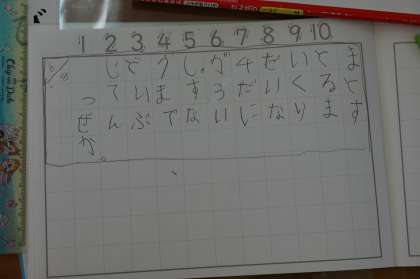 1 2 3 4 5 6 7 8 9 10
じどうしゃが4だいとま
っています3だいくると
ぜんぶでないになります
か。